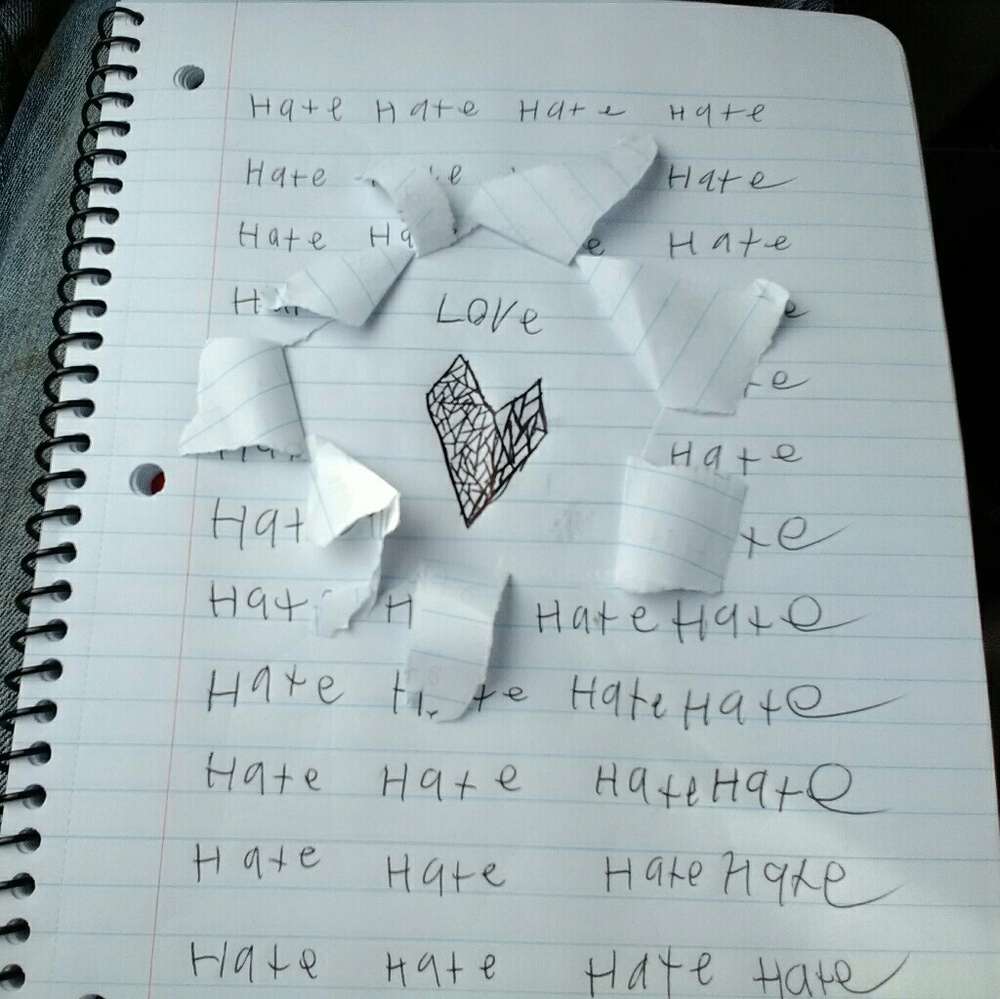 Hate Hate Hate Hate
Hate Hate
Hate Ha e Hate
H e
e
Hate
Hat te
Hat H Hate Hate
Hate H te Hate Hate
Hate Hate Hate Hate
Hate Hate Hate Hate
Hate Hate Hate Hate
LOVe